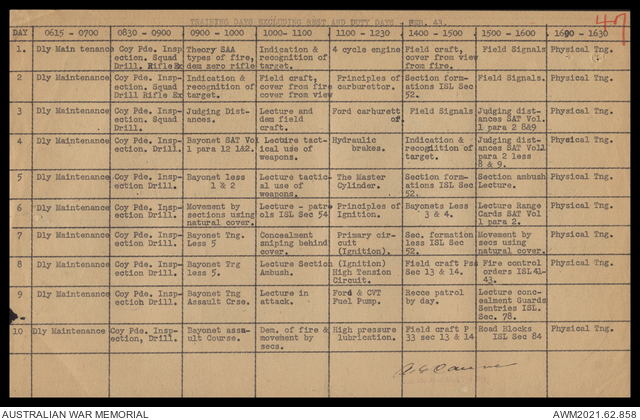 TRAINING DAYS EXCLUDING REST AND DUTY DAYS. FEB. 43. 47
DAY 0615 - 0700 0830 - 0900 0900 - 1000 1000- 1100 1100 - 1230 1400 - 1500 1500 - 1600 1600 - 1630
1. Dly Main tenance Coy Pde. Insp- Theory SAA Indication & 4 cycle engine. Field craft, Field Signals Physical Tng.
ection. Squad types of fire, recognition of cover from view
Drill. Rifle Ex dem zero rifle target. from fire.
2 Dly Maintenance Coy Pde. Insp- Indication & Field craft, Principles of Section form- Field Signals. Physical Tng.
ection. Squad recognition of cover from fire carburettor. ations ISL Sec
Drill Rifle Ex target. cover from view 52.
3 Dly Maintenance Coy Pde. Insp- Judging Dist- Lecture and Ford carburett Field Signals Judging dist- Physical Tng.
ection. Squad ances. dem field or. ances SAT Vol.
Drill. craft. 1 para 2 8&9
4 Dly Maintenance Coy Pde. Insp- Bayonet SAT Vol Lecture tact- Hydraulic Indication & Judging dist- Physical Tng.
ection. Drill. 1 para 12 1&2. ical use of brakes. recognition of ances SAT Vol1
weapons. target. para 2 less
8 & 9.
5 Dly Maintenance Coy Pde. Insp- Bayonet less Lecture tactic- The Master Section form- Section ambush Physical Tng.
ection Drill. 1 & 2 al use of Cylinder. ations ISL Sec Lecture.
weapons. 52.
6 Dly Maintenance Coy Pde. Insp- Movement by Lecture - patr- Principles of Bayonets Less Lecture Range Physical Tng.
ection Drill. sections using ols ISL Sec 54 Ignition. 3 & 4. Cards SAT Vol
natural cover. 1 para 2.
7 Dly Maintenance Coy Pde. Insp- Bayonet Tng. Concealment Primary cir- Sec. formation Movement by Physical Tng.
ection Drill. Less 5 sniping behind cuit less ISL Sec secs using
cover. (Ignition). 52. natural cover.
8 Dly Maintenance Coy Pde. Insp- Bayonet Trg Lecture Section (Ignition) Field craft Fire control Physical Tng.
ection Drill. less 5. Ambush. High Tension Sec 13 & 14. orders ISL 41-
Circuit. 43.
9 Dly Maintenance Coy Pde. Insp- Bayonet Tng Lecture in Ford & CVT Recce patrol Lecture conc- Physical Tng.
ection Drill. Assault Crse. attack. Fuel Pump. by day. ealment Guards
Sentries ISL.
Sec. 78.
10 Dly Maintenance Coy Pde. Insp- Bayonet assa- Dem. of fire & High pressure Field craft P Road Blocks Physical Tng.
ection, Drill. ult Course. movement by lubrication. 33 sec 13 & 14 ISL Sec 84
secs.
AUSTRALIAN WAR MEMORIAL AWM2021.62.858